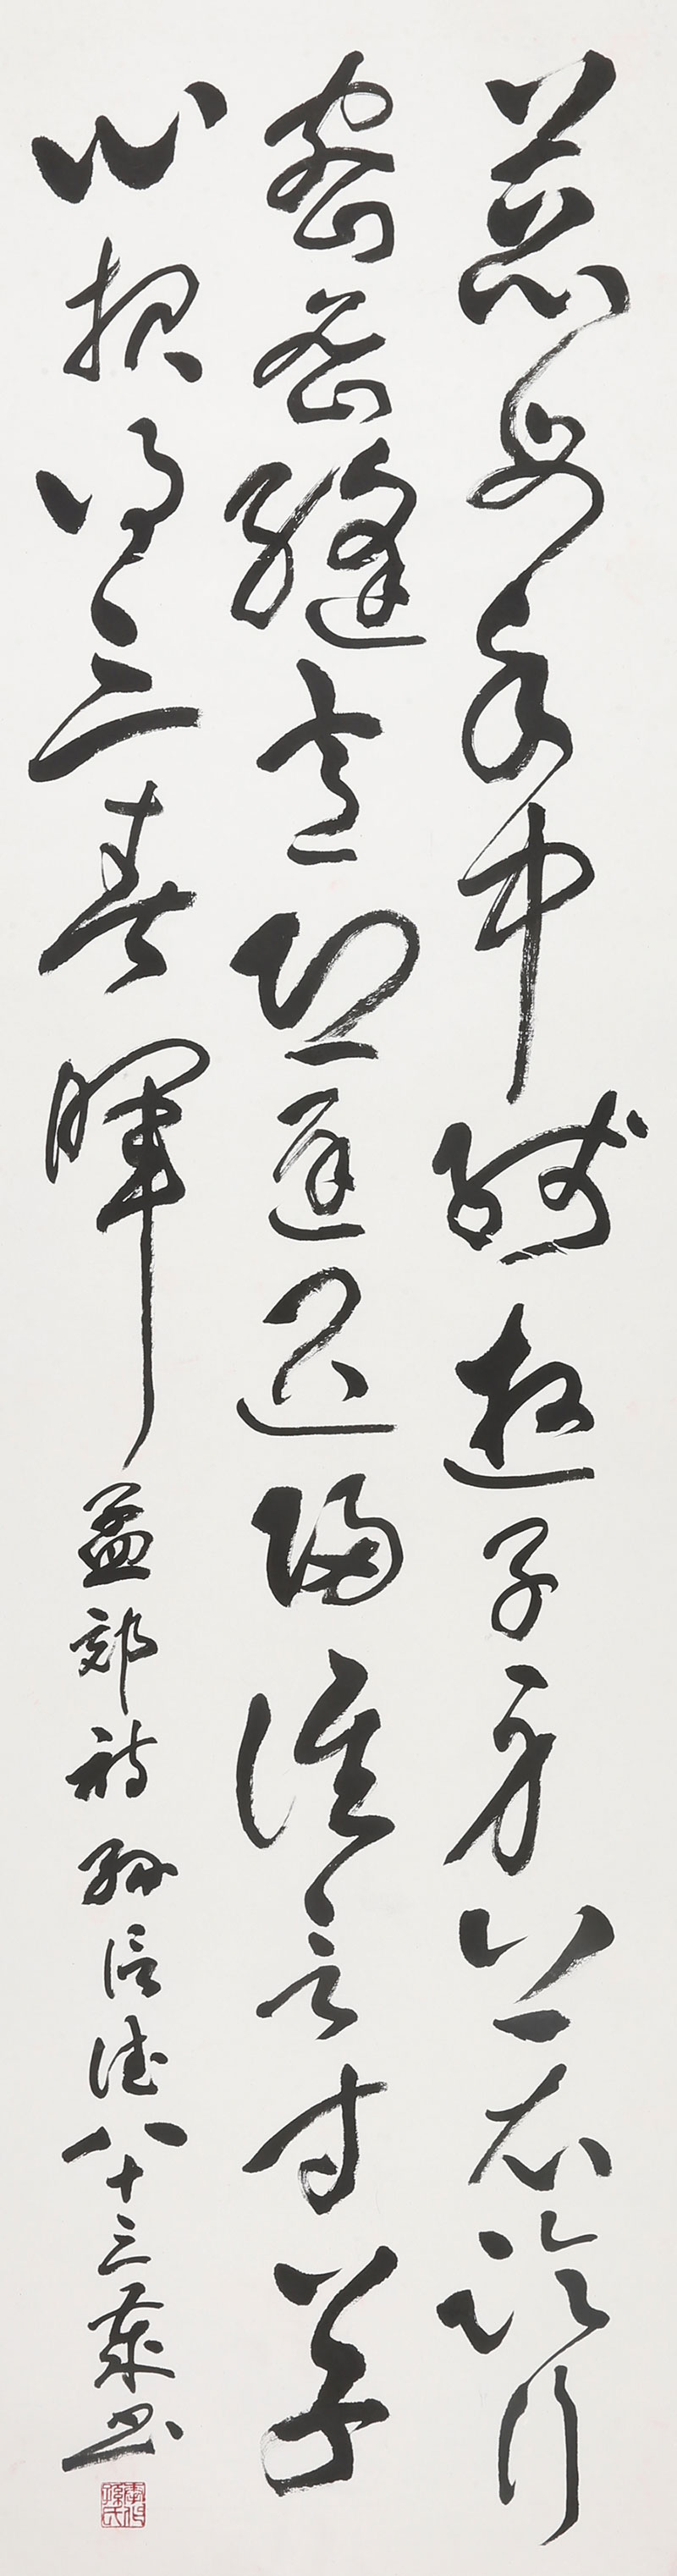 慈母手中綫遊子身上衣臨行
密密縫意恐遲遲歸誰言寸草
心報得三春暉 孟郊詩 孫信德八十三歲書